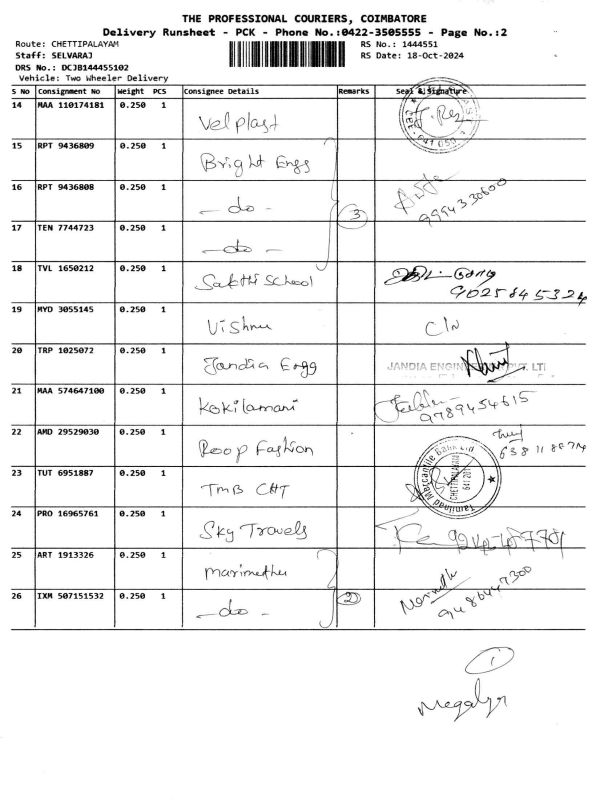 THE PROFESSIONAL COURIERS, COIMBATORE
Delivery Runsheet - PCK - Phone No.:0422-3505555 - Page No.:2
Route: CHETTIPALAYAM RS No.: 1444551
Staff: SELVARAJ RS Date: 18-Oct-2024
DRS No.: DCJB144455102
Vehicle: Two Wheeler Delivery
S No Consignment No Weight PCS Consignee Details Remarks Seal & Signature
14 MAA 110174181 0.250 1 Velplast
15 RPT 9436809 0.250 1 Bright Engg
16 RPT 9436808 0.250 1 - do - 3 9994330600
17 TEN 7744723 0.250 1 - do -
18 TVL 1650212 0.250 1 Sakthi School 9025845324
19 MYD 3055145 0.250 1 Vishnu C/N
20 TRP 1025072 0.250 1 Jandia Engg JANDIA ENGIN
21 MAA 574647100 0.250 1 Kokilamani 9789454615
22 AMD 29529030 0.250 1 Roop Fashion
23 TUT 6951887 0.250 1 TMB CHT Tamilnad Mercantile Bank Ltd CHETTIPALAYAM 641 201
24 PRO 16965761 0.250 1 Sky Travels
25 ART 1913326 0.250 1 Marimuthu
26 IXM 507151532 0.250 1 - do - 2 9486447300
1